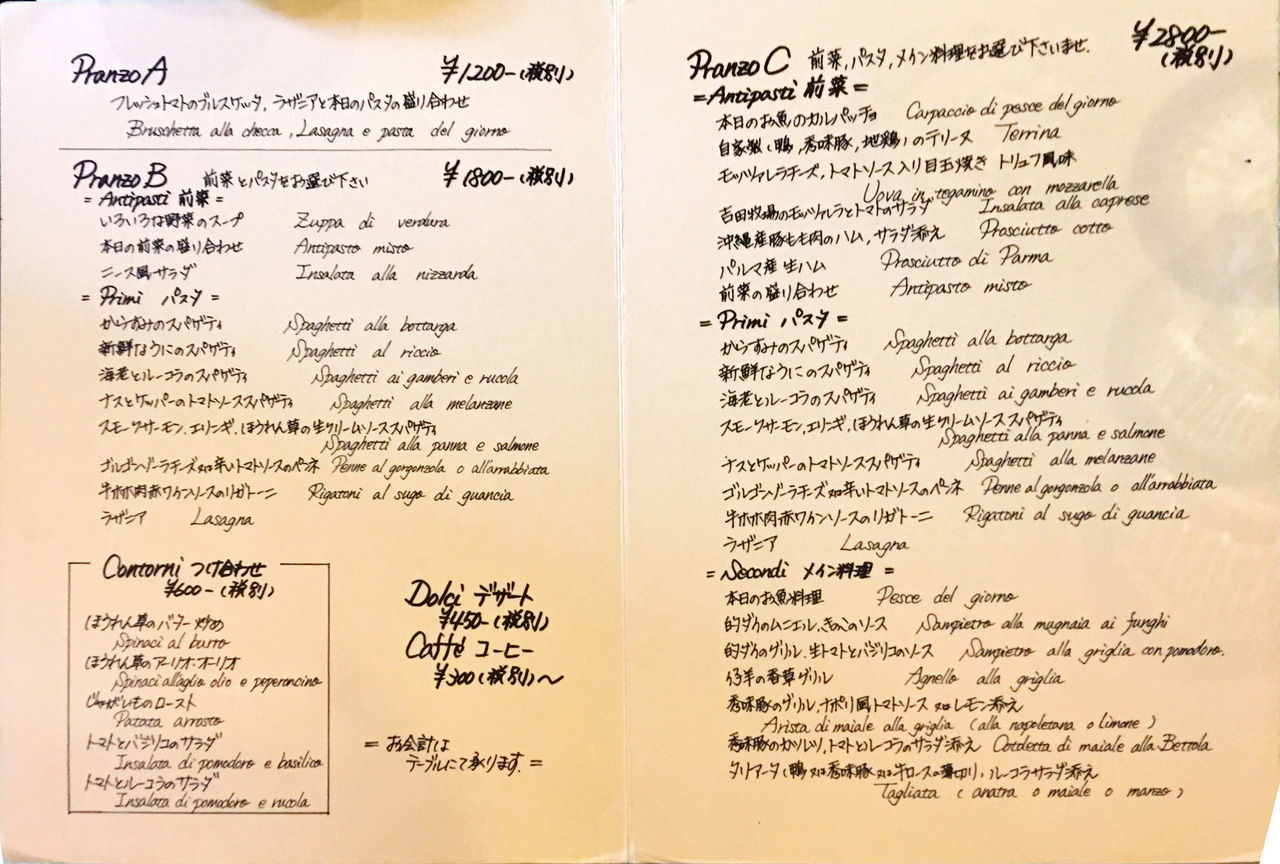 Pranzo A ¥1200-(税別)
フレッシュトマトのブルスケッタ, ラザニアと本日のパスタの盛り合わせ
Bruschetta alla checca, Lasagna e pasta del giorno
Pranzo B 前菜とパスタをお選び下さい ¥1800-(税別)
= Antipasti 前菜 =
いろいろな野菜のスープ Zuppa di verdura
本日の前菜の盛り合わせ Antipasto misto
ニース風サラダ Insalata alla nizzarda
= Primi パスタ =
からすみのスパゲティ Spaghetti alla bottarga
新鮮なうにのスパゲティ Spaghetti al riccio
海老とルーコラのスパゲティ Spaghetti ai gamberi e rucola
ナスとケッパーのトマトソーススパゲティ Spaghetti alla melanzane
スモークサーモン,エリンギ,ほうれん草の生クリームソーススパゲティ
Spaghetti alla panna e salmone
ゴルゴンゾーラチーズ又は辛いトマトソースのペンネ Penne al gorgonzola o all'arrabbiata
牛ホホ肉赤ワインソースのリガトーニ Rigatoni al sugo di guancia
ラザニア Lasagna
Contorni つけ合わせ
¥600-(税別)
ほうれん草のバター炒め
Spinaci al burro
ほうれん草のアーリオ・オーリオ
Spinaci all'aglio olio e peperoncino
じゃがいものロースト
Patata arrosto
トマトとバジリコのサラダ
Insalata di pomodoro e basilico
トマトとルーコラのサラダ
Insalata di pomodoro e rucola
Dolci デザート
¥450-(税別)
Caffé コーヒー
¥300(税別)〜
= お会計は
テーブルにて承ります. =
Pranzo C 前菜, パスタ, メイン料理をお選び下さいませ. ¥2800-
(税別)
= Antipasti 前菜 =
本日のお魚のカルパッチョ Carpaccio di pesce del giorno
自家製(鴨, 秀味豚, 地鶏)のテリーヌ Terrina
モッツァレラチーズ, トマトソース入り目玉焼き トリュフ風味
Uova in tegamino con mozzarella
吉田牧場のモッツァレラとトマトのサラダ Insalata alla caprese
沖縄産豚もも肉のハム, サラダ添え Prosciutto cotto
パルマ産生ハム Prosciutto di Parma
前菜の盛り合わせ Antipasto misto
= Primi パスタ =
からすみのスパゲティ Spaghetti alla bottarga
新鮮なうにのスパゲティ Spaghetti al riccio
海老とルーコラのスパゲティ Spaghetti ai gamberi e rucola
スモークサーモン,エリンギ,ほうれん草の生クリームソーススパゲティ
Spaghetti alla panna e salmone
ナスとケッパーのトマトソーススパゲティ Spaghetti alla melanzane
ゴルゴンゾーラチーズ又は辛いトマトソースのペンネ Penne al gorgonzola o all'arrabbiata
牛ホホ肉赤ワインソースのリガトーニ Rigatoni al sugo di guancia
ラザニア Lasagna
= Secondi メイン料理 =
本日のお魚料理 Pesce del giorno
的ダイのムニエル,きのこのソース Sampietro alla magnaia ai funghi
的ダイのグリル,生トマトとバジリコのソース Sampietro alla griglia con pomodoro.
仔羊の香草グリル Agnello alla griglia
秀味豚のグリル,ナポリ風トマトソース 又は レモン添え
Arista di maiale alla griglia (alla napoletana o limone)
秀味豚のカツレツ,トマトとルーコラのサラダ添え Cotoletta di maiale alla Bettola
タリアータ(鴨 又は 秀味豚 又は 牛ロースの薄切り), ルーコラサラダ添え
Tagliata (anatra o maiale o manzo)